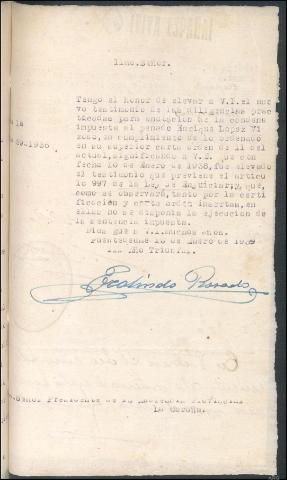 Ilmo. Señor.
Tengo el honor de elevar a V.I. el nue
vo testimonio de las diligencias prac
ticadas para anotacion de la condena
impuesta al penado Enrique Lopez Vi
en cumplimiento de lo ordenado
en su superior carta orden de 11 del
actual, significando a V.I. que con
fecha 10 de Enero de 1938, fue elevado
el testimonio que previene el articu
lo 997 de la Ley de Enjuiciar, y que,
como se observará, tanto por la certi
ficación y carta orden insertas, en
ellas no se disponia la ejecucion de
la sentencia impuesta.
Dios gue a V.I. muchos años.
Puentedeume 16 de Enero de 1939
III Año Triunfal.
Señor Presidente de la Audiencia Provincial
La Coruña.